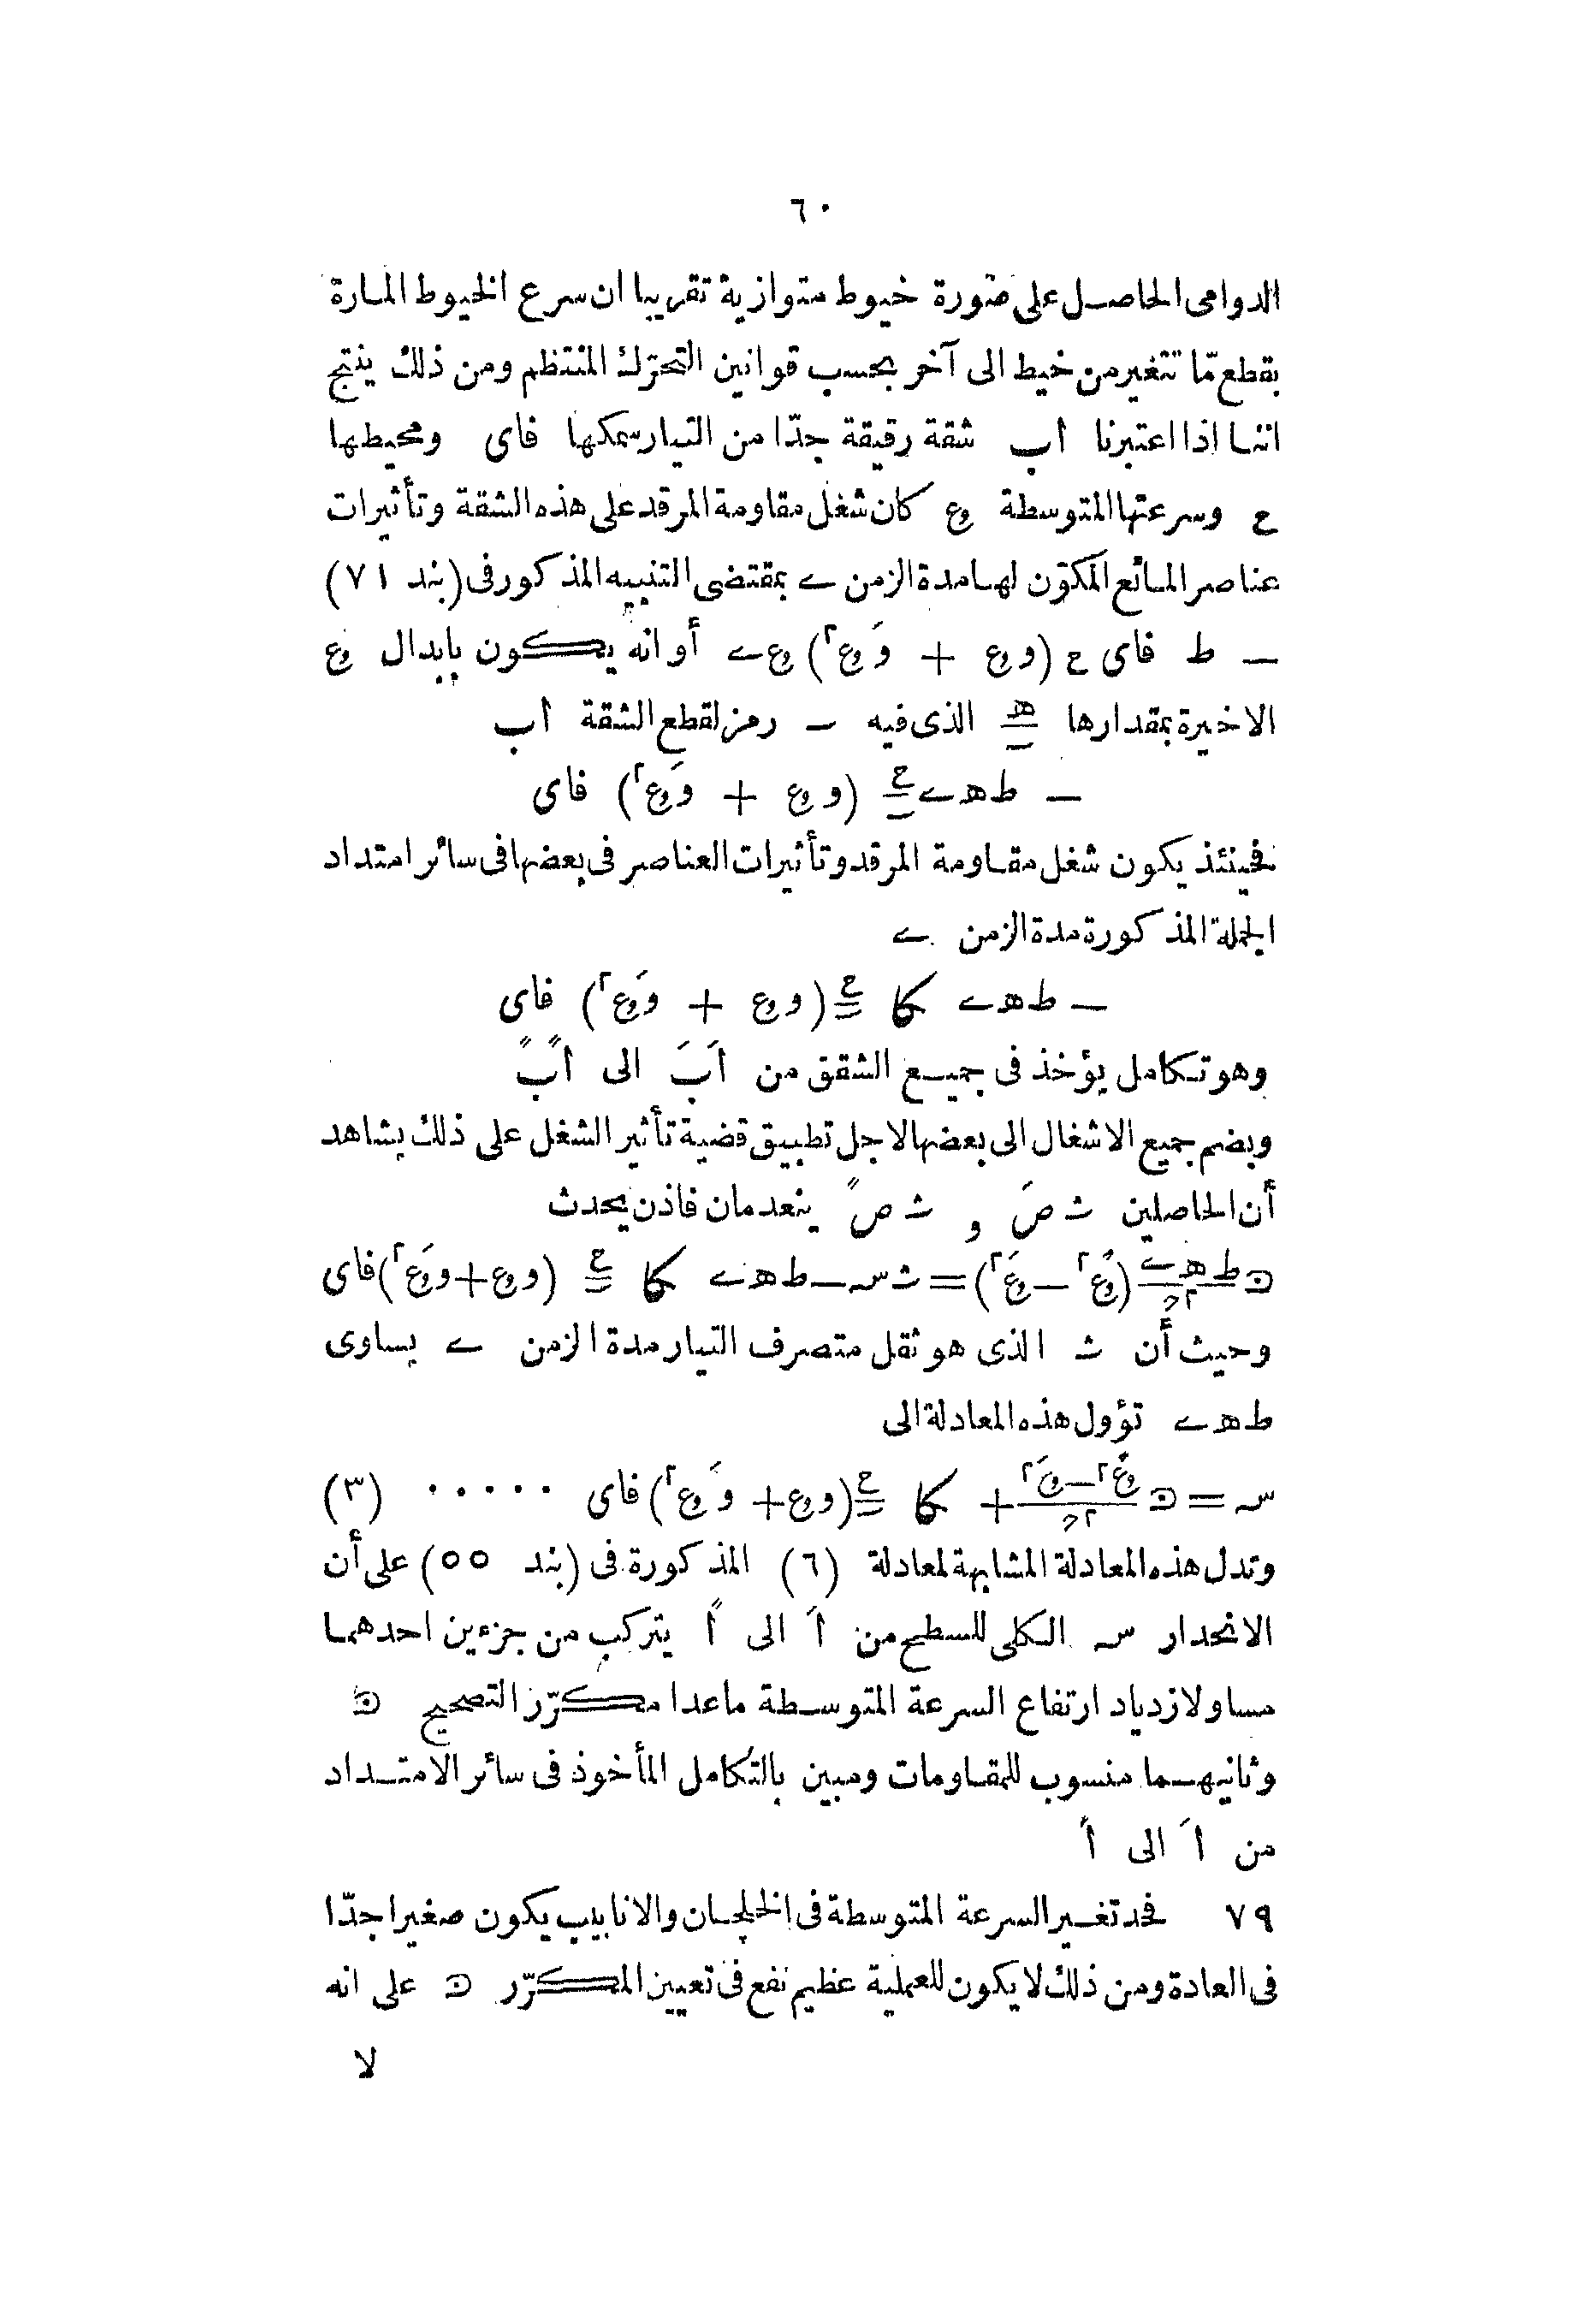 ٦٠
الدوامى الحاصل على صورة خيوط متوازية تقريبا ان سرع الخيوط المارة
بقطع مّا تتغير من خيط الى آخر بحسب قوانين التحرّك المنتظم ومن ذلك ينتج
اننا اذا اعتبرنا اب شقة رقيقة جدّا من التيار سمكها فاى ومحيطها
ح وسرعتها المتوسطة وع كان شغل مقاومة المرقد على هذه الشقة وتأثيرات
عناصر المائع المكوّن لها مدة الزمن ے بمقتضى التنبيه المذكور فى (بند ٧١)
— ط فاى ح (و وع + وَ وع٢) وع ے أو انه يكون بابدال وع
الاخيرة بمقدارها هـ/ـ الذى فيه ـ رمز لقطع الشقة اب
— ط هـ ے ح/ـ (و وع + وَ وع٢) فاى
فحينئذ يكون شغل مقاومة المرقد وتأثيرات العناصر فى بعضها فى سائر امتداد
الجملة المذكورة مدة الزمن ے
— ط هـ ے کا ح/ـ (و وع + وَ وع٢) فاى
وهو تكامل يؤخذ فى جميع الشقق من اَبَ الى اًبً
وبضم جميع الاشغال الى بعضها لاجل تطبيق قضية تأثير الشغل على ذلك يشاهد
أن الحاصلين ث صَ و ث صً ينعدمان فاذن يحدث
ط هـ ے/٢ء (وعً٢ — وعَ٢) = ث سہ — ط هـ ے کا ح/ـ (و وع + وَ وع٢) فاى
وحيث أن ث الذى هو ثقل متصرف التيار مدة الزمن ے يساوى
ط هـ ے تؤول هذه المعادلة الى
سہ = وعً٢ — وعَ٢/٢ء + کا ح/ـ (و وع + وَ وع٢) فاى ٠٠٠٠٠ (٣)
وتدل هذه المعادلة المشابهة لمعادلة (٦) المذكورة فى (بند ٥٥) على أن
الانحدار سہ الكلى للسطح من اَ الى اً يتركب من جزءين احدهما
مساو لازدياد ارتفاع السرعة المتوسطة ماعدا مكرّر التصحيح
وثانيهما منسوب للمقاومات ومبين بالتكامل المأخوذ فى سائر الامتداد
من اَ الى اً
٧٩ فحد تغير السرعة المتوسطة فى الخلجان والانابيب يكون صغيرا جدّا
فى العادة ومن ذلك لا يكون للعملية عظيم نفع فى تعيين المكرّر على انه
لا